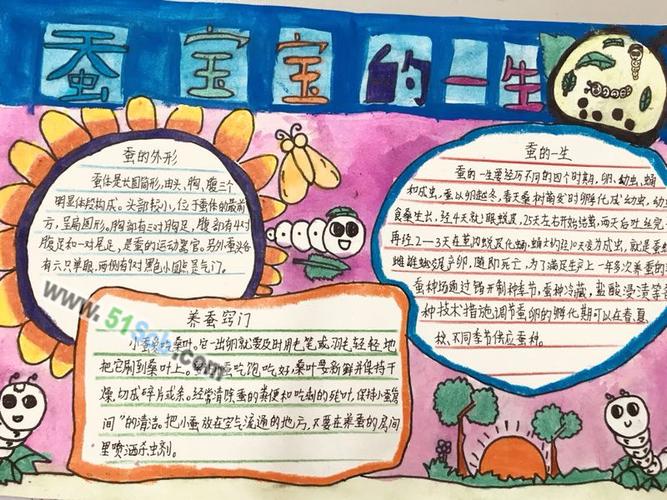 蚕宝宝的一生
蚕的外形
蚕体是长圆筒形,由头、胸、腹三个
明显体段构成。头部较小,位于蚕体的最前
方,呈扁圆形。胸部有三对胸足,腹部有4对
腹足和一对尾足,是蚕的运动器官。另外蚕头右
有六只单眼,两侧有9对黑色小圆点是气门。
蚕的一生
蚕的一生要经历不同的四个时期,卵、幼虫、蛹
和成虫,蚕以卵越冬,春天桑树萌发时卵孵化成幼虫,幼虫
食桑生长,经4天就1眠蜕皮,25天左右开始结茧,两天后吐丝完,
再径2—3天在茧内蜕皮化蛹,蛹大约经10天变为成虫,就是蚕蛾
雌雄蛾交尾产卵,随即死亡,为了满足生产上一年多次养蚕的
蚕种场通过错开制种季节,蚕种冷藏,盐酸浸渍等
种技术措施调节蚕卵的孵化期可以在春、夏
秋、不同季节供应蚕种。
养蚕窍门
小蚕吃桑叶。它一出卵就要及时用毛笔或羽毛轻轻地
把它刷到桑叶上。吃饱吃好桑叶要新鲜并保持干
燥,切成碎片或条。经常清除蚕的粪便和吃剩的残叶,保持小蚕"房
间"的清洁。把小蚕放在空气流通的地方,不要在养蚕的房间
里喷洒杀虫剂。
www.51Scb.com